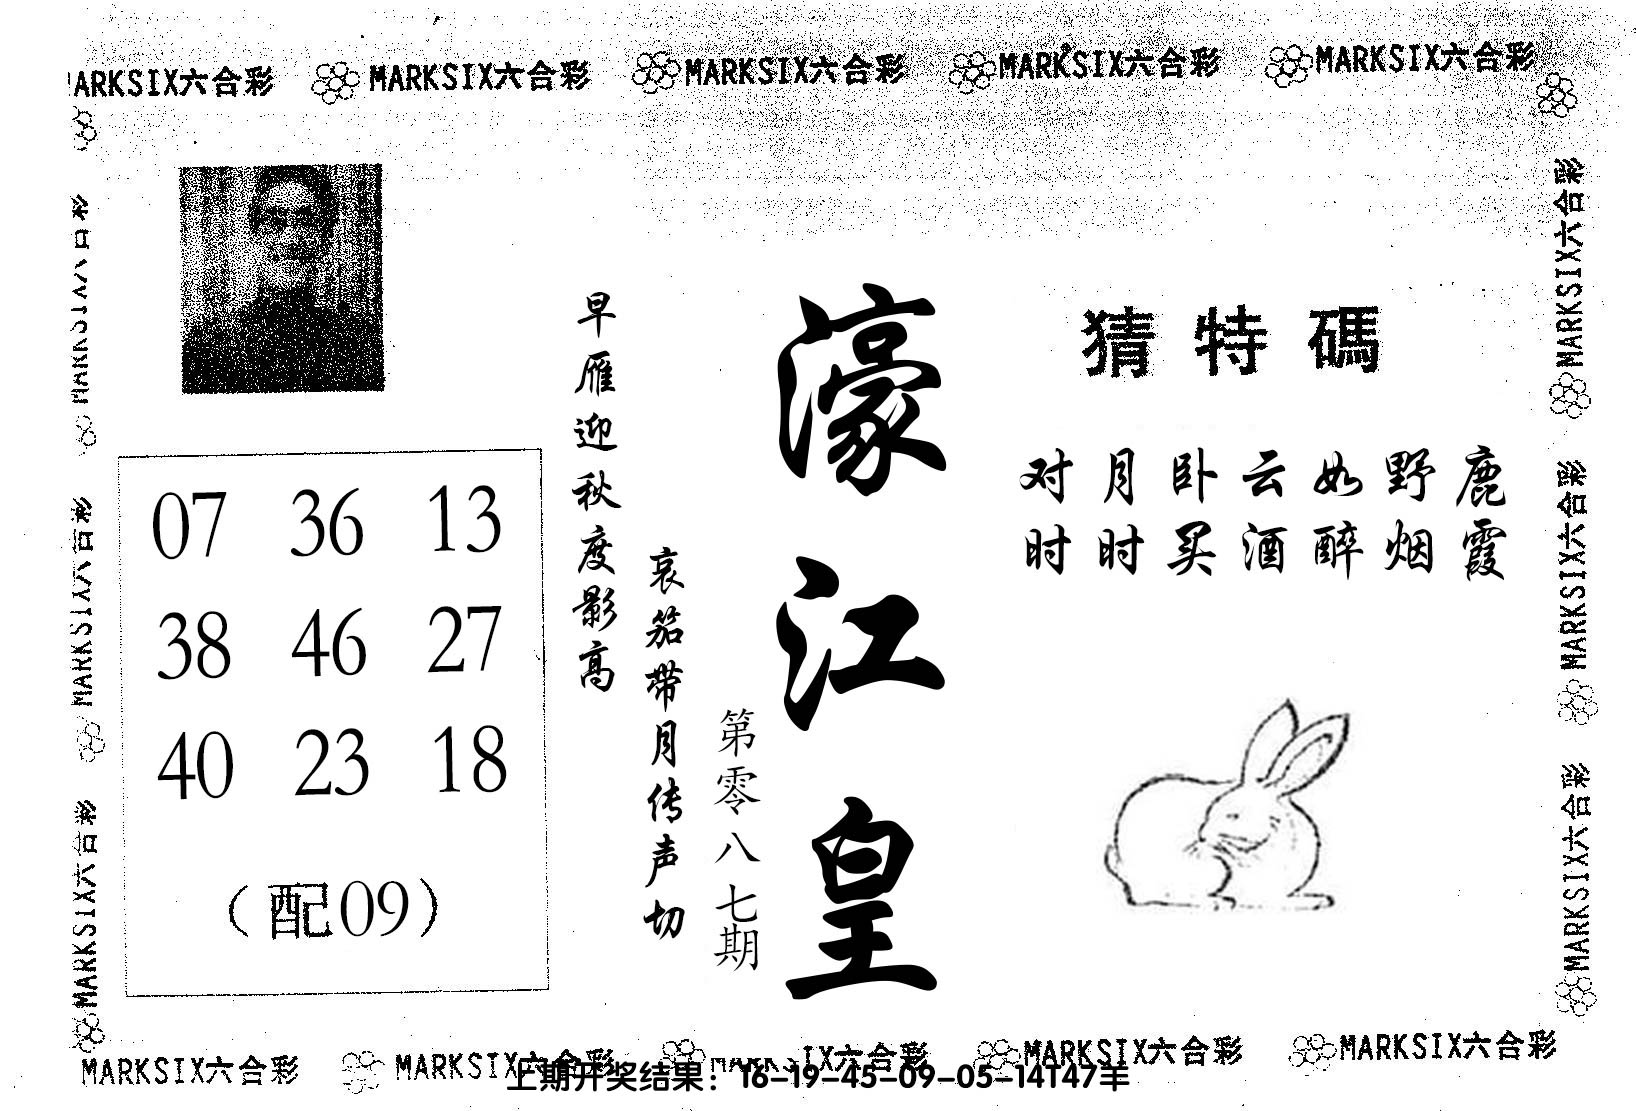 MARKSIX六合彩 MARKSIX六合彩 MARKSIX六合彩 MARKSIX六合彩 MARKSIX六合彩
猜特碼
对月卧云如野鹿
时时买酒醉烟霞
濠江皇
第零八七期
早雁迎秋度影高
哀笳带月传声切
07 36 13
38 46 27
40 23 18
（配09）
MARKSIX六合彩
MARKSIX六合彩
MARKSIX六合彩
MARKSIX六合彩
MARKSIX六合彩
MARKSIX六合彩
MARKSIX六合彩 MARKSIX六合彩 MARKSIX六合彩 MARKSIX六合彩 MARKSIX六合彩
上期开奖结果：16-19-45-09-05-14T47羊